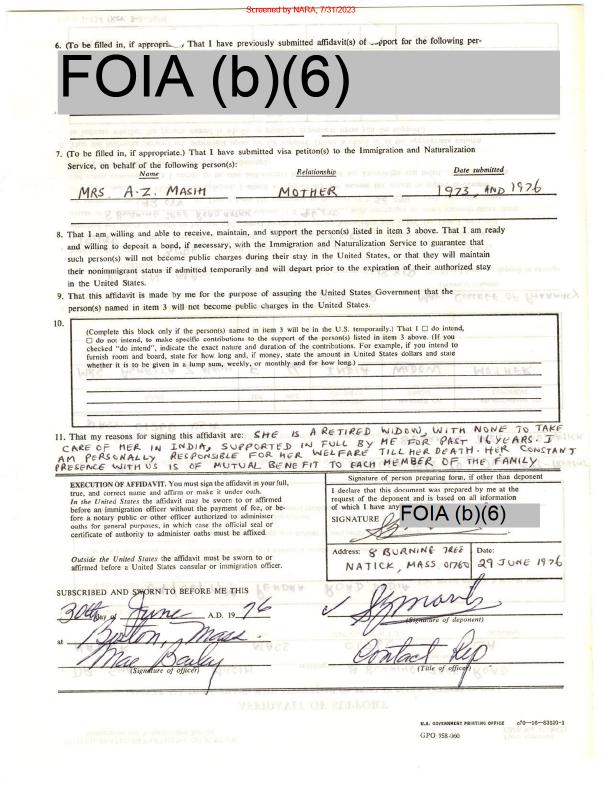 Screened by NARA, 7/31/2023
6. (To be filled in, if appropri... That I have previously submitted affidavit(s) of support for the following per-
FOIA (b)(6)
7. (To be filled in, if appropriate.) That I have submitted visa petiton(s) to the Immigration and Naturalization
Service, on behalf of the following person(s):
Name Relationship Date submitted
MRS. A.Z. MASIH MOTHER 1973, AND 1976
8. That I am willing and able to receive, maintain, and support the person(s) listed in item 3 above. That I am ready
and willing to deposit a bond, if necessary, with the Immigration and Naturalization Service to guarantee that
such person(s) will not become public charges during their stay in the United States, or that they will maintain
their nonimmigrant status if admitted temporarily and will depart prior to the expiration of their authorized stay
in the United States.
9. That this affidavit is made by me for the purpose of assuring the United States Government that the
person(s) named in item 3 will not become public charges in the United States.
10.
(Complete this block only if the person(s) named in item 3 will be in the U.S. temporarily.) That I ☐ do intend,
☐ do not intend, to make specific contributions to the support of the person(s) listed in item 3 above. (If you
checked "do intend", indicate the exact nature and duration of the contributions. For example, if you intend to
furnish room and board, state for how long and, if money, state the amount in United States dollars and state
whether it is to be given in a lump sum, weekly, or monthly and for how long.)
11. That my reasons for signing this affidavit are: SHE IS A RETIRED WIDOW, WITH NONE TO TAKE
CARE OF HER IN INDIA, SUPPORTED IN FULL BY ME FOR PAST 16 YEARS. I
AM PERSONALLY RESPONSIBLE FOR HER WELFARE TILL HER DEATH. HER CONSTANT
PRESENCE WITH US IS OF MUTUAL BENEFIT TO EACH MEMBER OF THE FAMILY
EXECUTION OF AFFIDAVIT. You must sign the affidavit in your full,
true, and correct name and affirm or make it under oath.
In the United States the affidavit may be sworn to or affirmed
before an immigration officer without the payment of fee, or be-
fore a notary public or other officer authorized to administer
oaths for general purposes, in which case the official seal or
certificate of authority to administer oaths must be affixed.
Outside the United States the affidavit must be sworn to or
affirmed before a United States consular or immigration officer.
Signature of person preparing form, if other than deponent
I declare that this document was prepared by me at the
request of the deponent and is based on all information
of which I have any
SIGNATURE FOIA (b)(6)
Address: 8 BURNING TREE
NATICK, MASS 01760
Date:
29 JUNE 1976
SUBSCRIBED AND SWORN TO BEFORE ME THIS
30th Day of June A.D. 1976
(Signature of deponent)
at Boston, Mass.
Mae Bailey Contact Rep
(Signature of officer) (Title of officer)
AFFIDAVIT OF SUPPORT
U.S. GOVERNMENT PRINTING OFFICE c70-16-83520-1
GPO 958-060